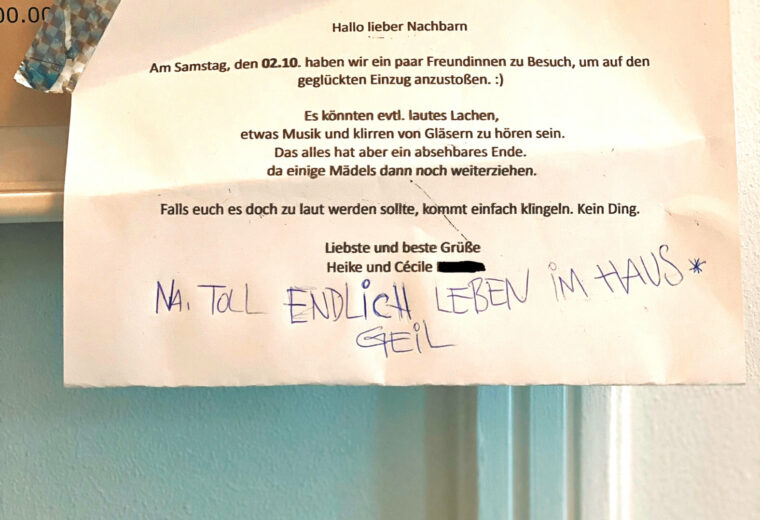 00.00
Hallo lieber Nachbarn
Am Samstag, den 02.10. haben wir ein paar Freundinnen zu Besuch, um auf den
geglückten Einzug anzustoßen. :)
Es könnten evtl. lautes Lachen,
etwas Musik und klirren von Gläsern zu hören sein.
Das alles hat aber ein absehbares Ende.
da einige Mädels dann noch weiterziehen.
Falls euch es doch zu laut werden sollte, kommt einfach klingeln. Kein Ding.
Liebste und beste Grüße
Heike und Cécile
NA. TOLL ENDLICH LEBEN IM HAUS *
GEIL